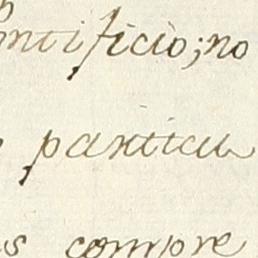 ontificio; no
particu
s compre